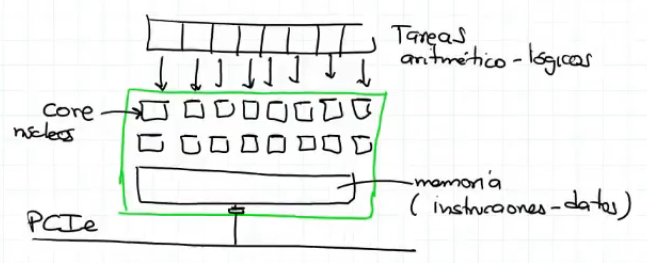 Tareas
aritmético-lógicas
core
nucleos
memoria
(instrucciones-datos)
PCIe